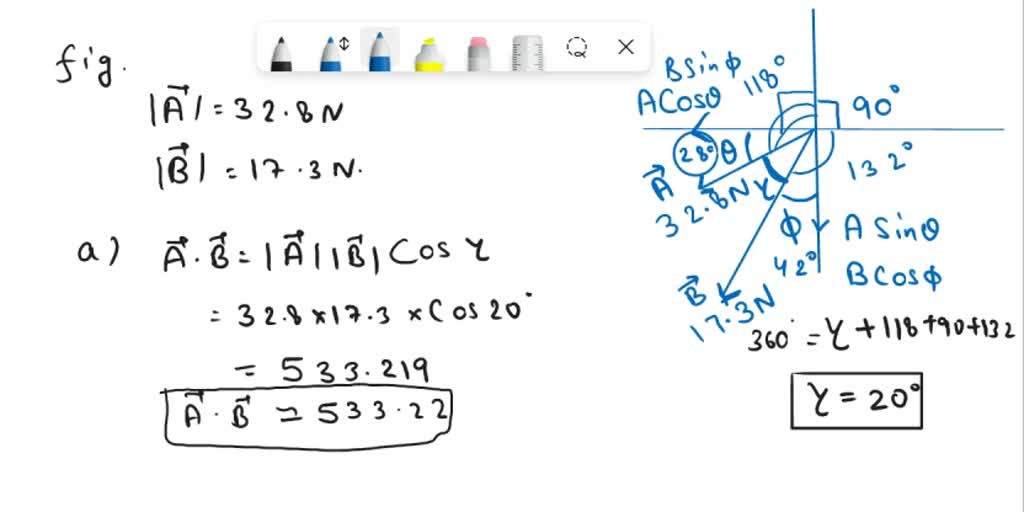 fig.
|A⃗| = 32.8 N
|B⃗| = 17.3 N.
a) A⃗ . B⃗ = |A⃗||B⃗| Cos γ
= 32.8 × 17.3 × Cos 20°
= 533.219
A⃗ . B⃗ ≃ 533.22
B sin ϕ
A Cosθ
118°
90°
28°
θ
132°
A⃗
32.8N
γ
ϕ
42°
A Sinθ
B Cosϕ
B⃗
17.3N
360° = γ + 118+90+132
γ = 20°